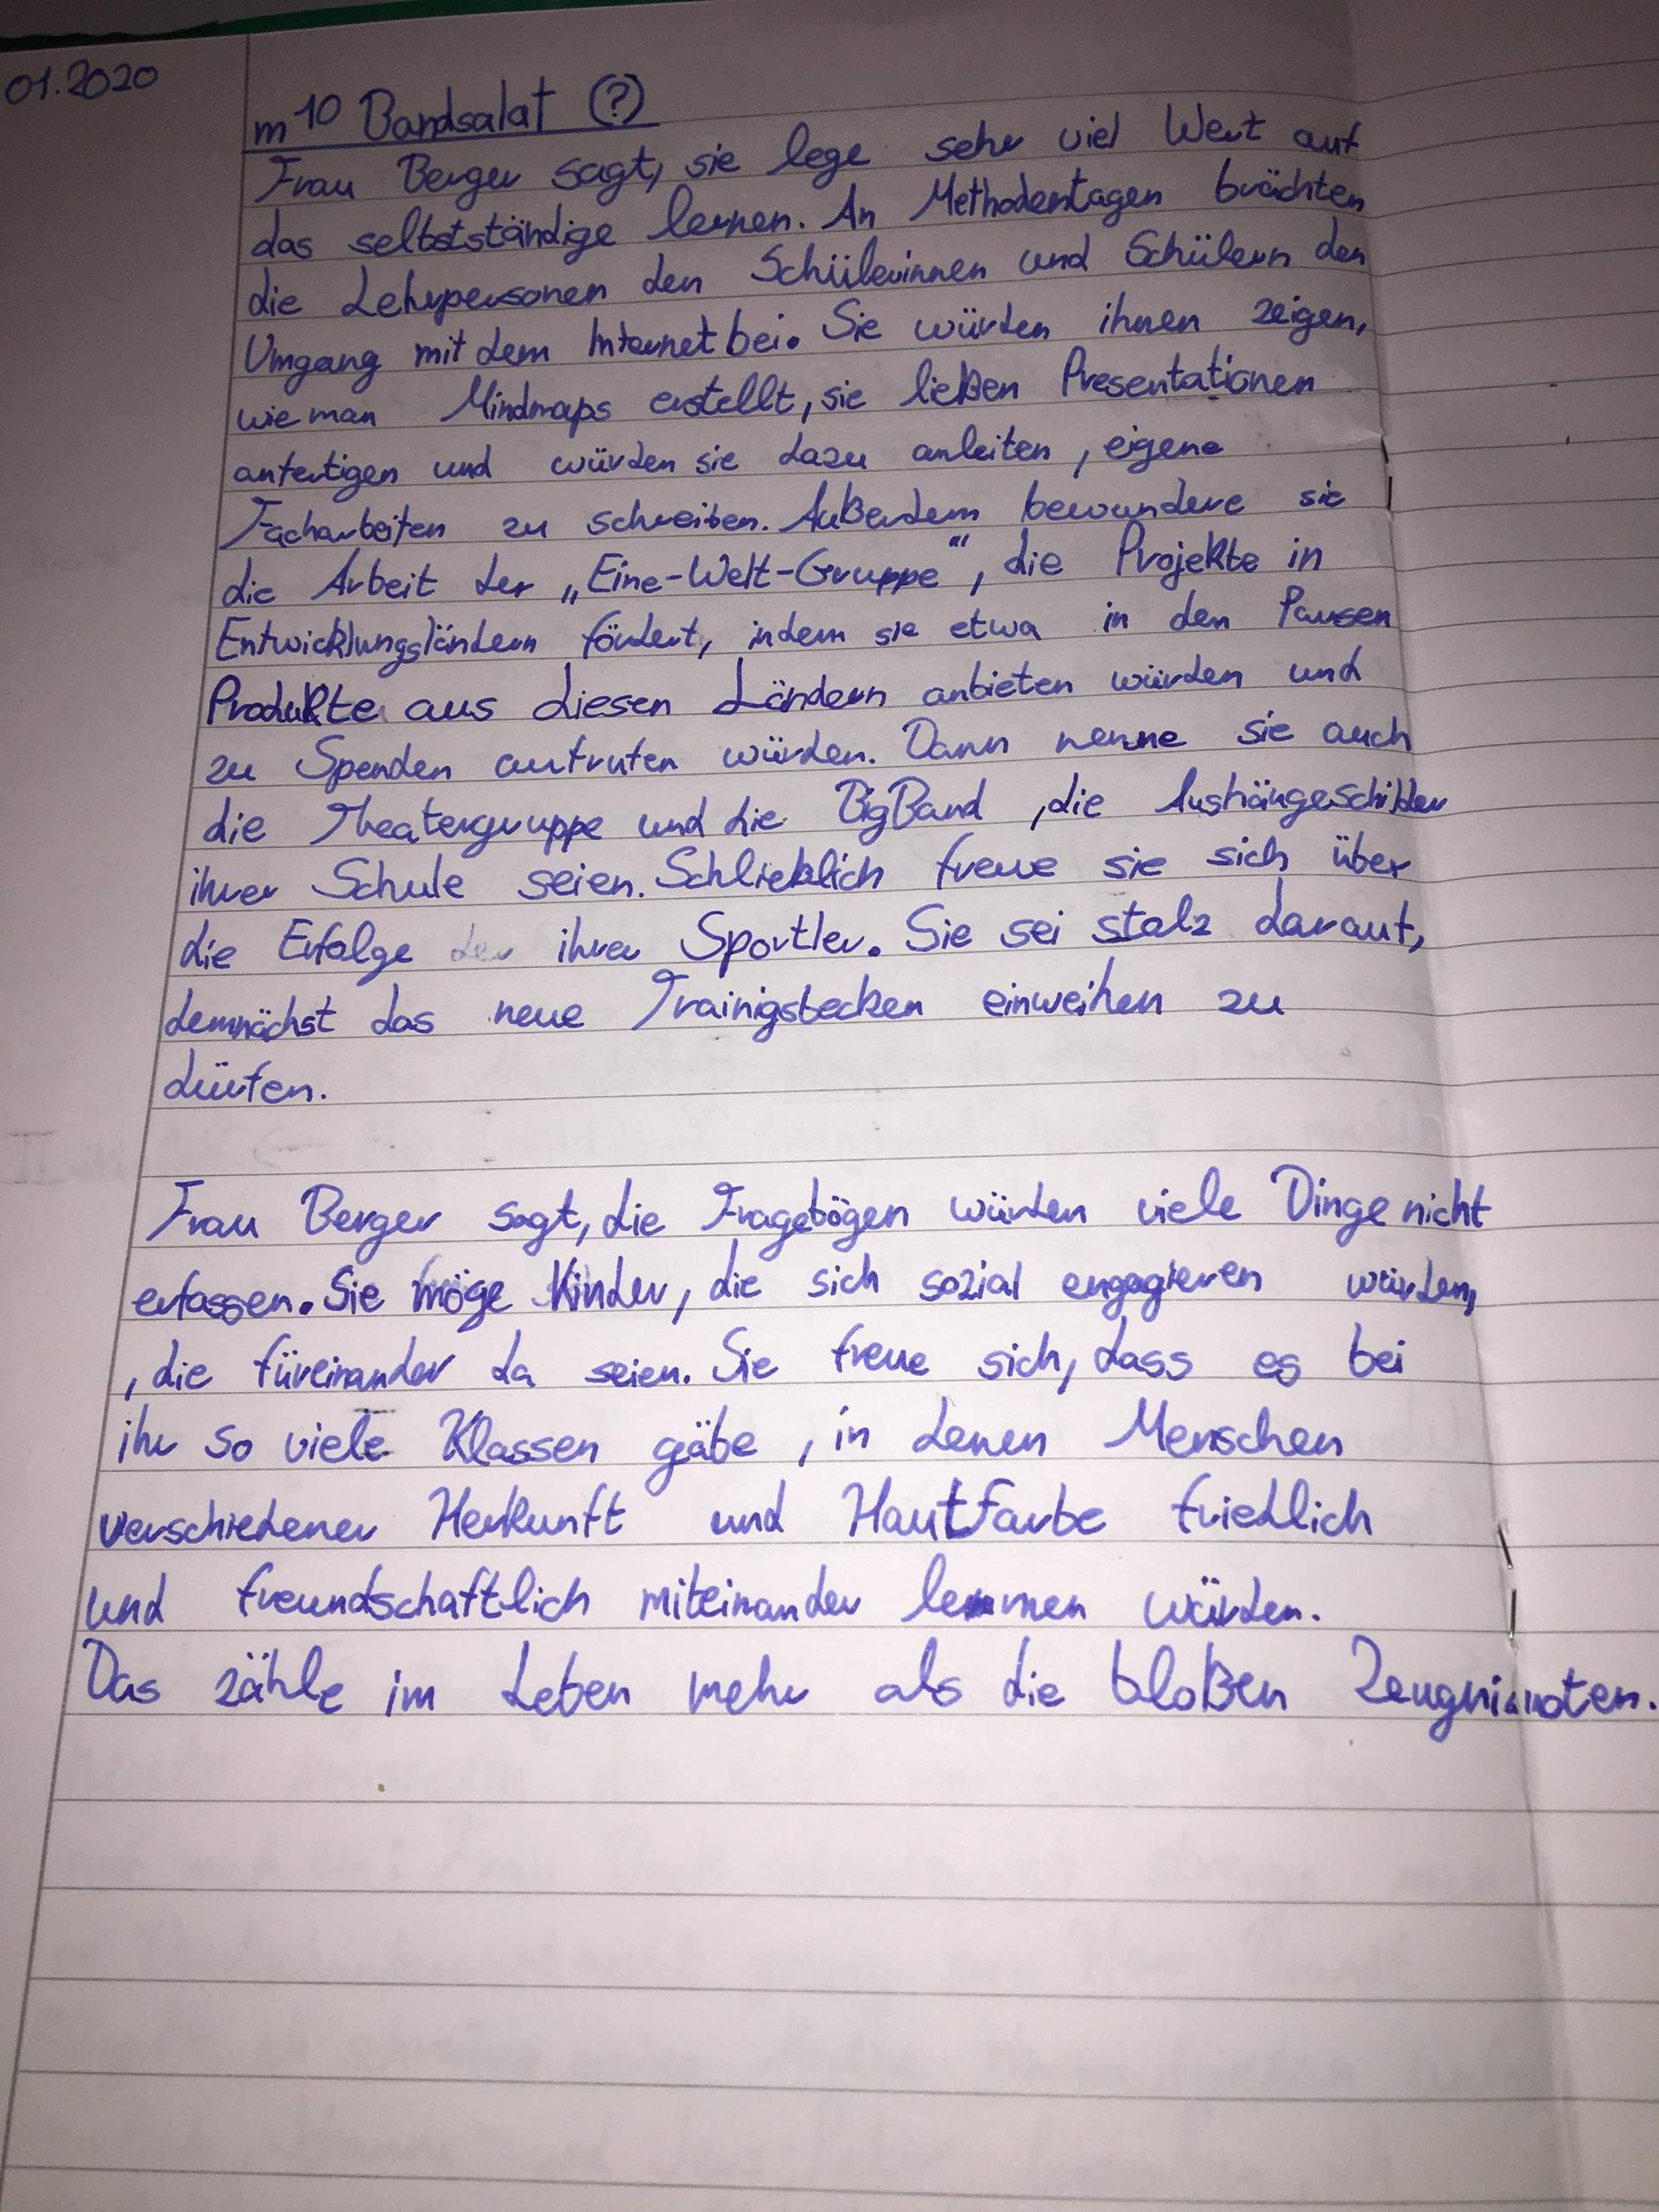 01.2020
m10 Bandsalat (?)
Frau Berger sagt, sie lege sehr viel Wert auf
das selbstständige lernen. An Methodentagen brächten
die Lehrpersonen den Schülerinnen und Schülern den
Umgang mit dem Internet bei. Sie würden ihnen zeigen,
wie man Mindmaps erstellt, sie ließen Presentationen
anfertigen und würden sie dazu anleiten, eigene
Facharbeiten zu schreiben. Außerdem bewundere sie
die Arbeit der „Eine-Welt-Gruppe“, die Projekte in
Entwicklungsländern fördert, indem sie etwa in den Pausen
Produkte aus diesen Ländern anbieten würden und
zu Spenden aufrufen würden. Dann nenne sie auch
die Theatergruppe und die BigBand, die Aushängeschilder
ihrer Schule seien. Schließlich freue sie sich über
die Erfolge der ihrer Sportler. Sie sei stolz darauf,
demnächst das neue Trainigsbecken einweihen zu
dürfen.
Frau Berger sagt, die Fragebögen würden viele Dinge nicht
erfassen. Sie möge Kinder, die sich sozial engagieren würden,
, die füreinander da seien. Sie freue sich, dass es bei
ihr so viele Klassen gäbe, in denen Menschen
verschiedener Herkunft und Hautfarbe friedlich
und freundschaftlich miteinander lernen würden.
Das zähle im Leben mehr als die bloßen Zeugnisnoten.